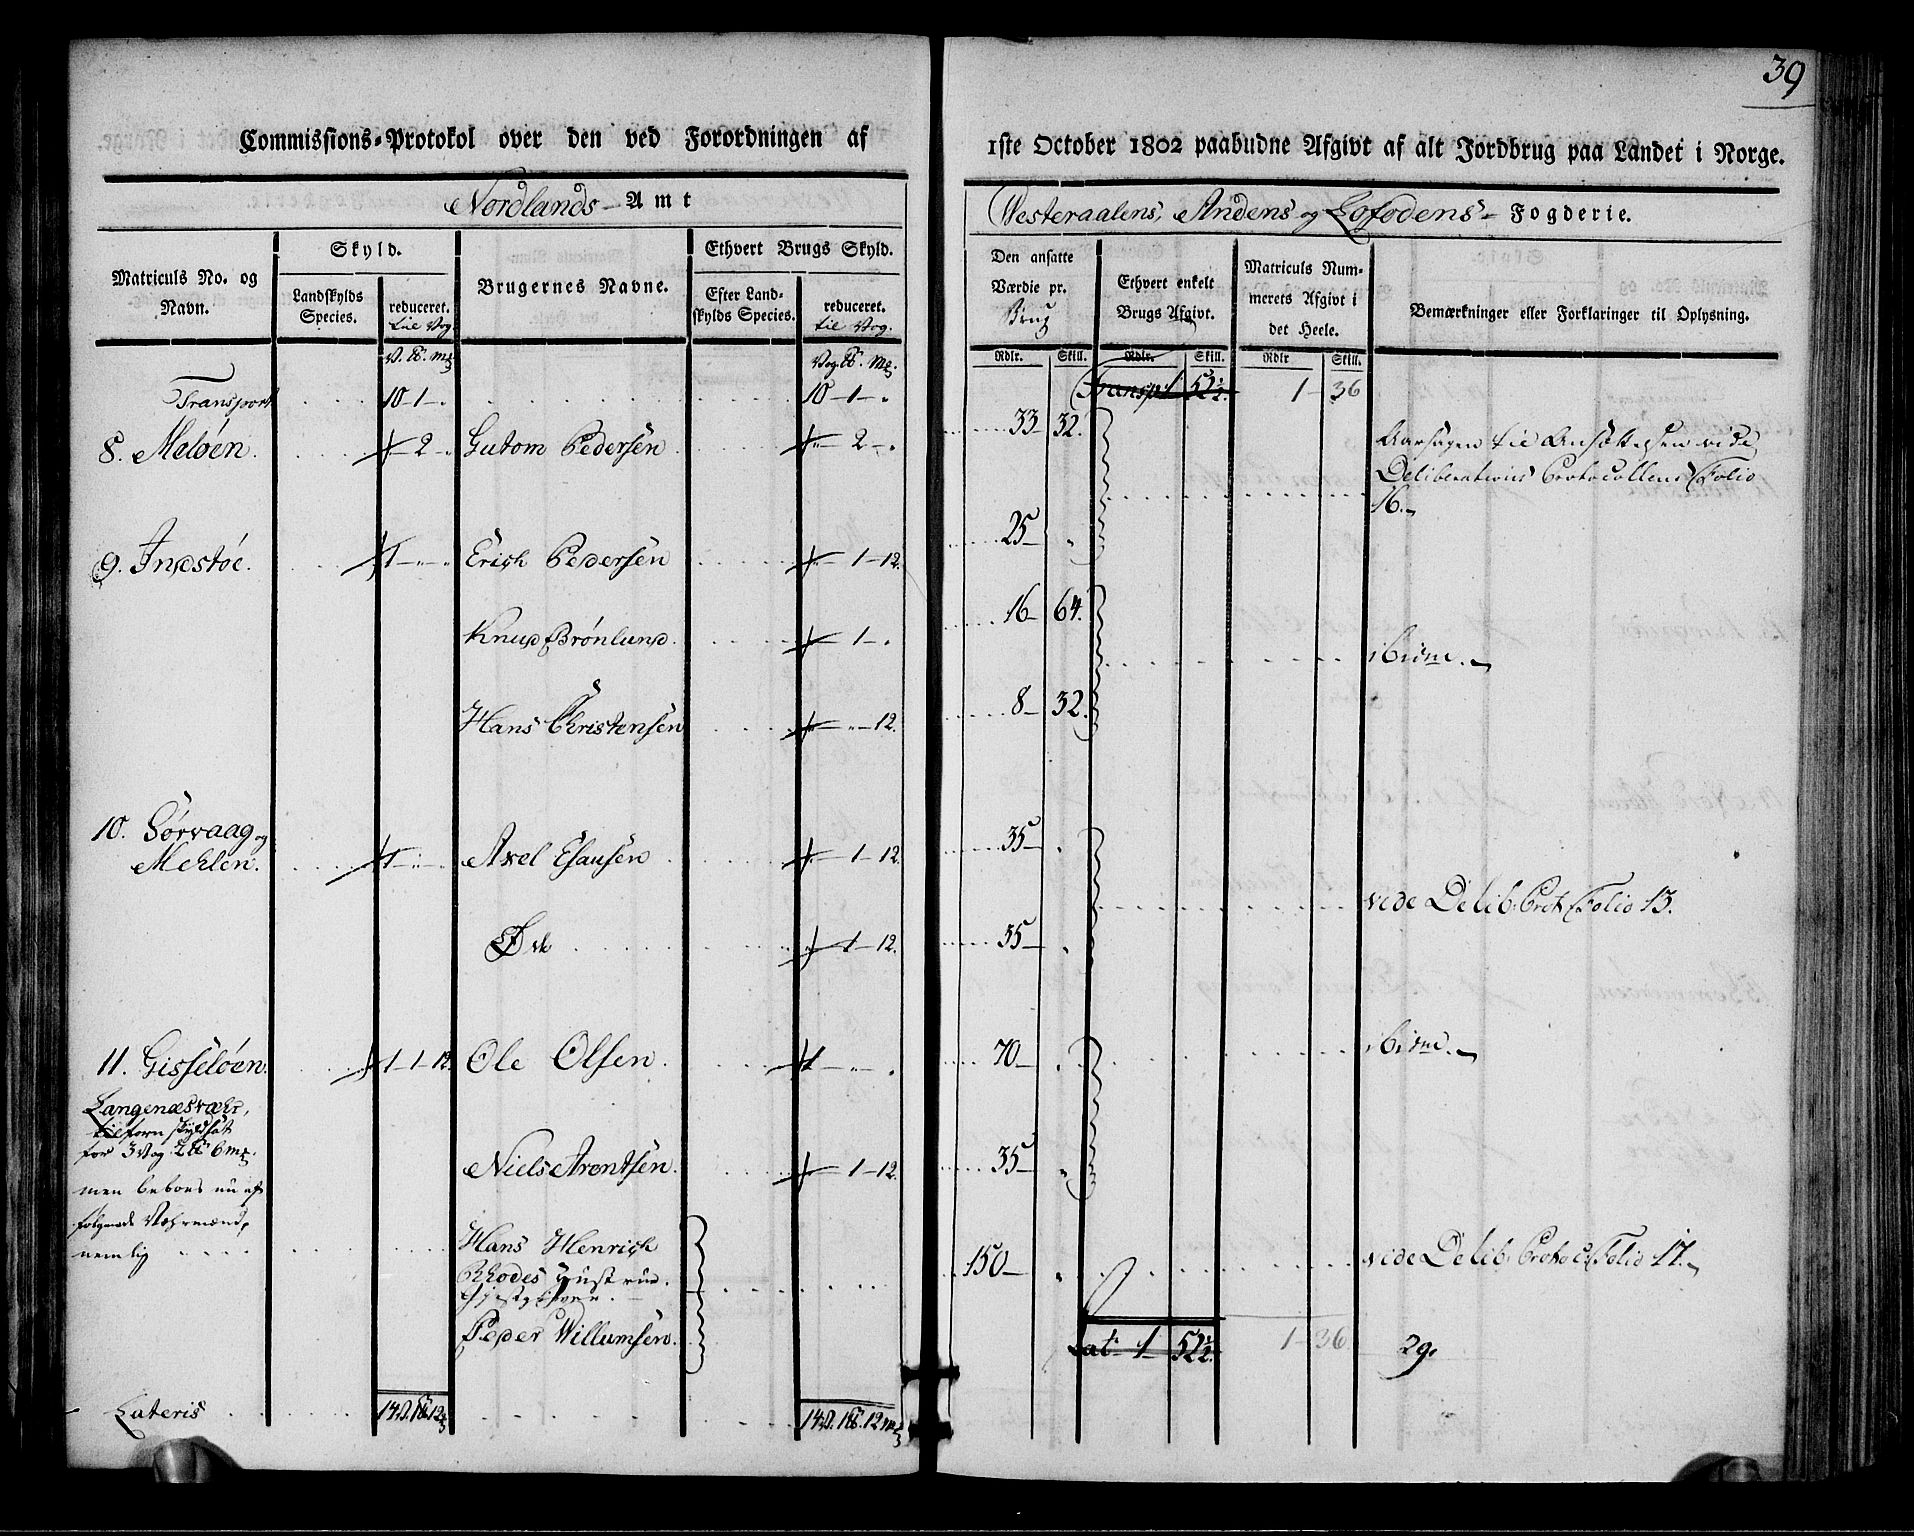 39
Commissions-Protokol over den ved Forordningen af 1ste October 1802 paabudne Afgivt af alt Jordbrug paa Landet i Norge.
Nordlands Amt
Westeraalens, Andens og Lofodens Fogderie.
Matriculs No. og Navn.
Skyld.
Landskylds Species.
reduceret. til Vog.
Brugernes Navne.
Ethvert Brugs Skyld.
Efter Landskylds Species.
reduceret. til Vog.
Den ansatte Værdie pr. Brug
Ethvert enkelt Brugs Afgivt.
Matriculs Nummerets Afgivt i det Heele.
Bemærkninger eller Forklaringer til Oplysning.
Rdlr. Skill. Rdlr. Skill. Rdlr Skill.
Transport 10-1-. 10-1-. Transp: 1 52½. 1-36
8. Meløen. 2 Gutom Pedersen 2 33 32. Aarsagen til Ansættelsen vide
Deliberations Protocollens Folio
16.
9. Indstøe. 1 Erich Pedersen 1-12. 25
Knud Brönlund 1 16 64. ibidm.
Hans Christensen 12. 8 32.
10. Sørvaag og
Mehlen. 1 Axel Esausen 1-12. 35
vide Delib: Prot Folio 13.
Øde 1-12. 35
11. Gisseløen. 1-1-12. Ole Olsen 1 70 ibidm.
Langenæsværs,
tilforn skyldsat
for 3 Vog 2 6 mk.
men beboes nu af
følgende Vehrmænd,
nemlig
Niels Arentsen. 1-12. 35
Hans Henrich
Rhodes
Peder Willumsen.
150 vide Delib: Protoc: Folio 17.
Lat. 1 52½. 1-36 29.
Lateris 14 V. 1 12 14 V. 1 12 mk